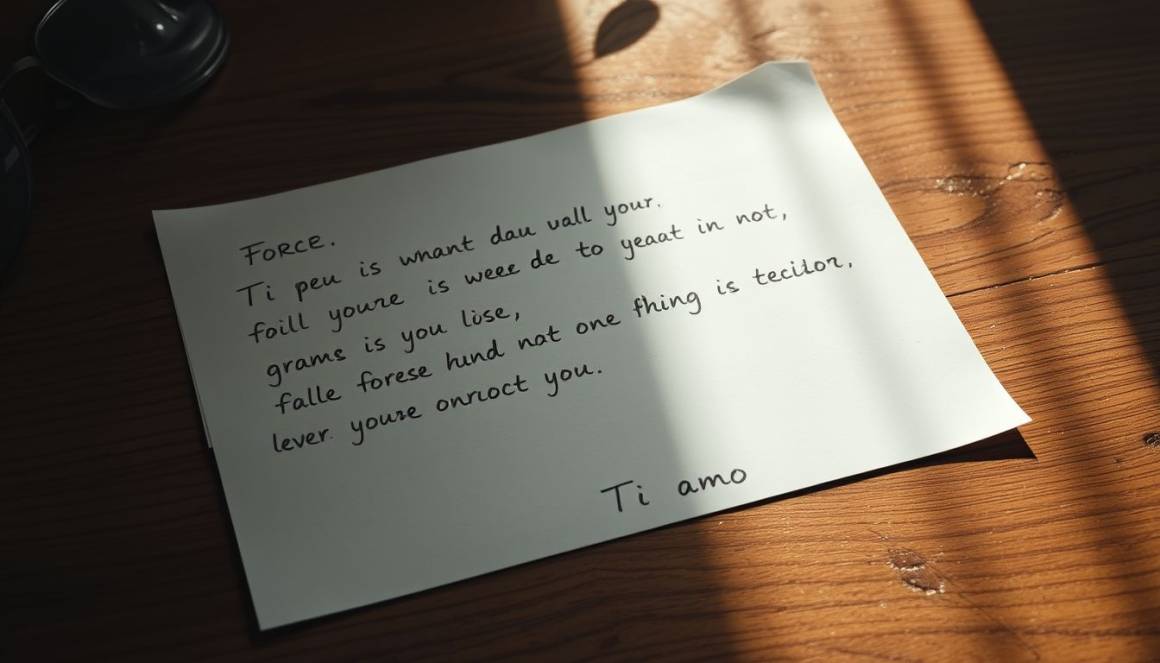 FORCE.
Ti peu is wnant dau vall your.
foill youre is weee de to yeaat in not,
grams is you lise,
falle forese hund nat one fhing is tecilor,
lever. youse onrioct you.
Ti amo